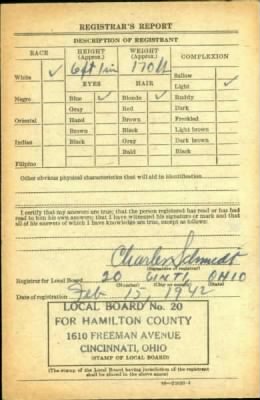 REGISTRAR'S REPORT
DESCRIPTION OF REGISTRANT
RACE HEIGHT (Approx.) WEIGHT (Approx.) COMPLEXION
White ✓ 6ft 1in 170 lb Sallow
EYES HAIR Light ✓
Negro Blue ✓ Blonde ✓ Ruddy
Gray Red Dark
Oriental Hazel Brown Freckled
Brown Black Light brown
Indian Black Gray Dark brown
Bald Black
Filipino
Other obvious physical characteristics that will aid in identification
I certify that my answers are true; that the person registered has read or has had
read to him his own answers; that I have witnessed his signature or mark and that
all of his answers of which I have knowledge are true, except as follows:
Charles Schmidt
(Signature of registrar)
Registrar for Local Board 20 CINTI, OHIO
(Number) (City or county) (State)
Date of registration Feb 15, 1942
LOCAL BOARD No. 20
FOR HAMILTON COUNTY
1610 FREEMAN AVENUE
CINCINNATI, OHIO
(STAMP OF LOCAL BOARD)
(The stamp of the Local Board having jurisdiction of the registrant
shall be placed in the above space)